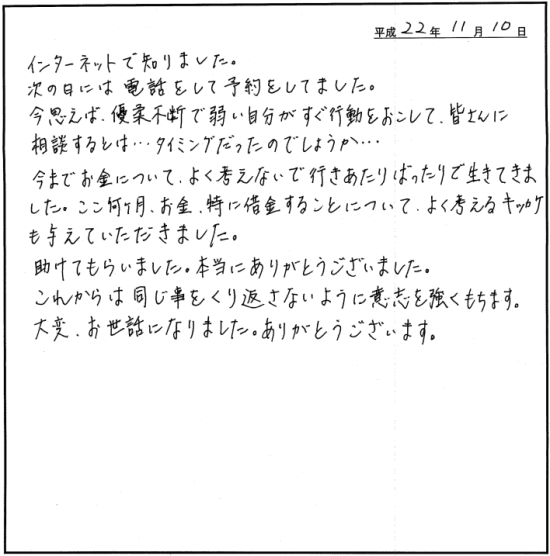 平成 22年 11月 10日
インターネットで知りました。
次の日には電話をして予約をしてました。
今思えば、優柔不断で弱い自分がすぐ行動をおこして、皆さんに
相談するとは…タイミングだったのでしょうか…
今までお金について、よく考えないで行きあたりばったりで生きてきま
した。ここ何ヶ月、お金、特に借金することについて、よく考えるキッカケ
も与えていただきました。
助けてもらいました。本当にありがとうございました。
これからは同じ事をくり返さないように意志を強くもちます。
大変、お世話になりました。ありがとうございます。